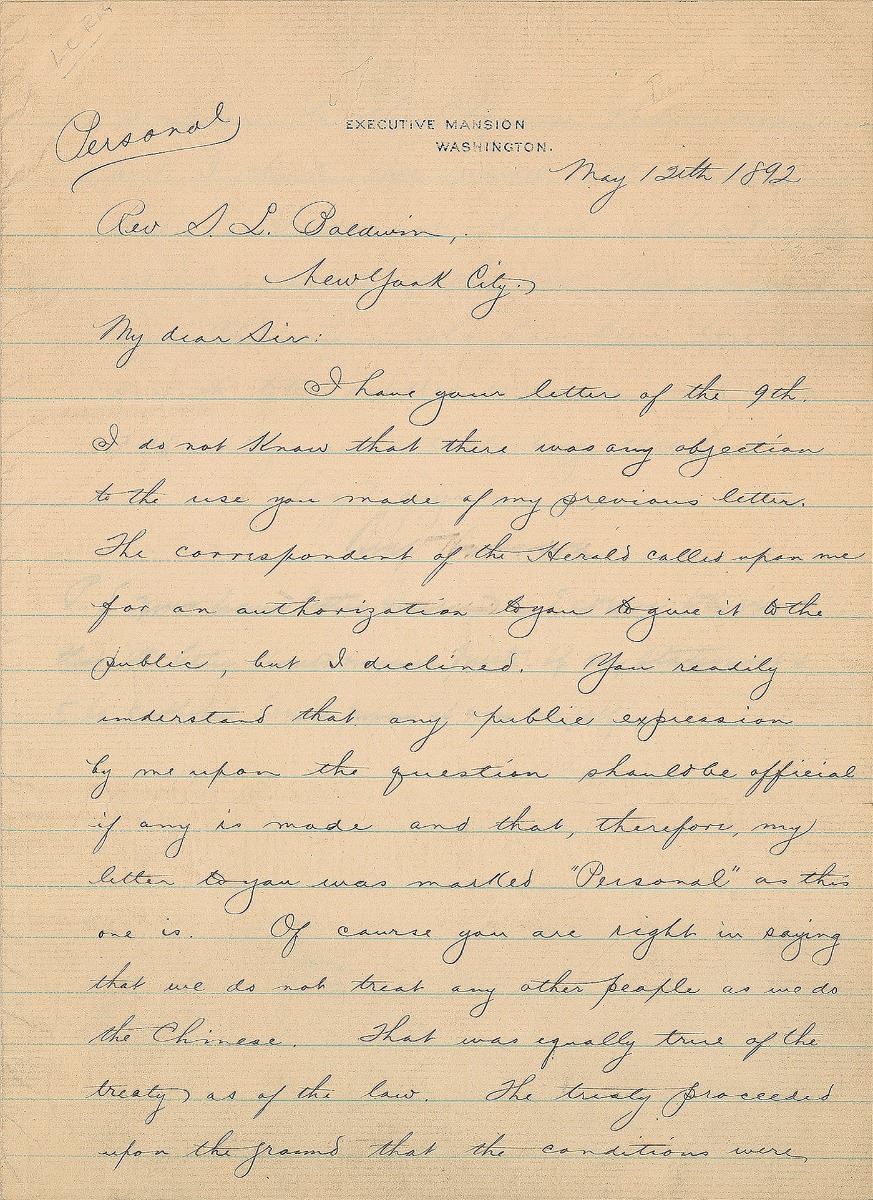 Personal
EXECUTIVE MANSION
WASHINGTON.
May 12th 1892
Rev S. L. Baldwin,
New York City.
My dear Sir:
I have your letter of the 9th.
I do not know that there was any objection
to the use you made of my previous letter.
The correspondent of the Herald called upon me
for an authorization to you to give it to the
public, but I declined. You readily
understand that any public expression
by me upon the question should be official
if any is made and that, therefore, my
letter to you was marked "Personal" as this
one is. Of course you are right in saying
that we do not treat any other people as we do
the Chinese. That was equally true of the
treaty as of the law. The treaty proceeded
upon the ground that the conditions were